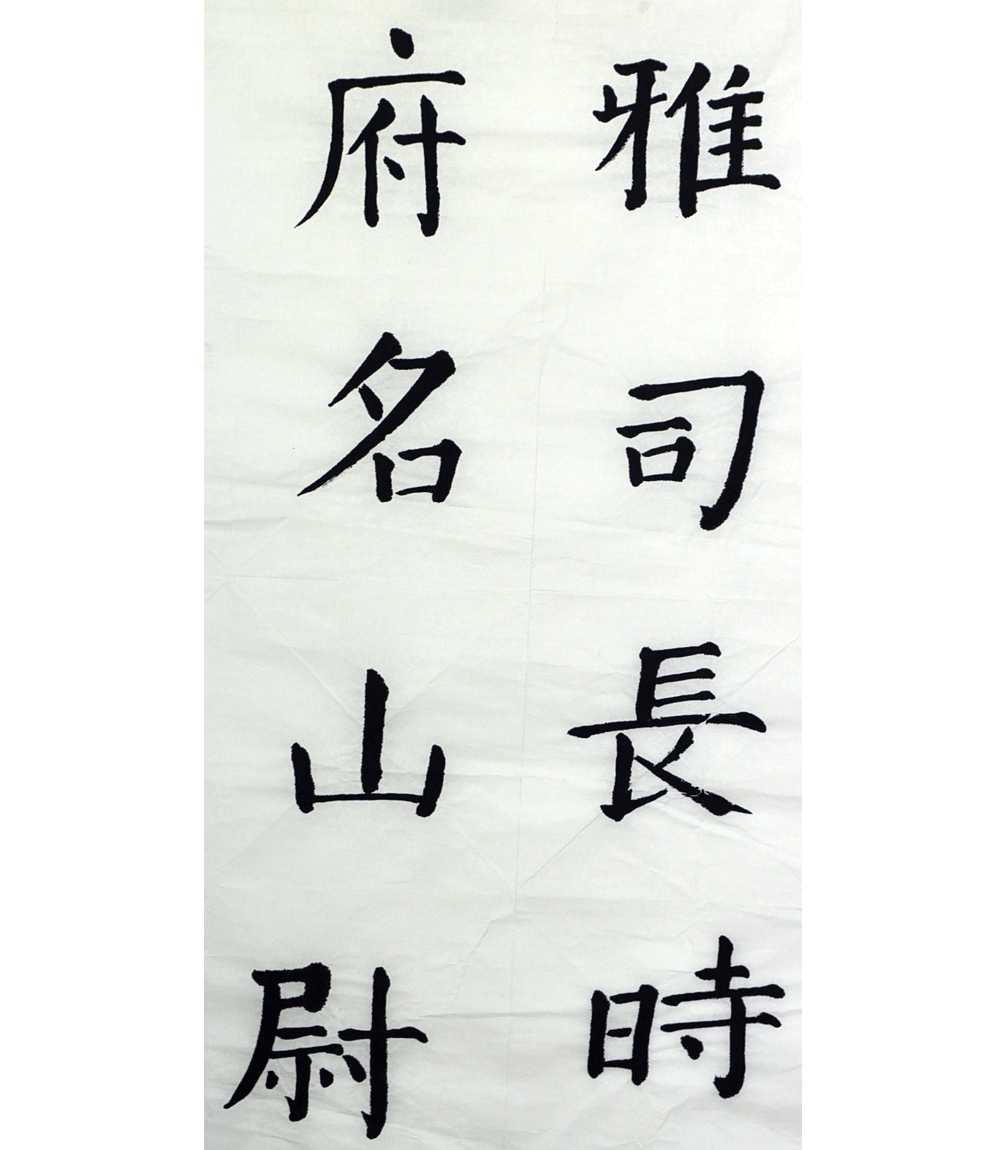 雅司長時
府名山尉